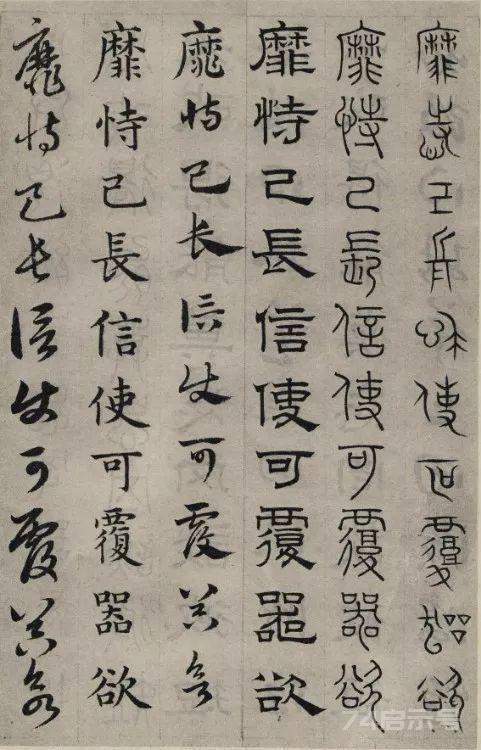 靡恃己長信使可覆器欲
靡恃己長信使可覆器欲
靡恃己長信使可覆器欲
靡恃己长信使可覆器欲
靡恃己長信使可覆器欲
靡恃己长信使可覆器欲
74启示号